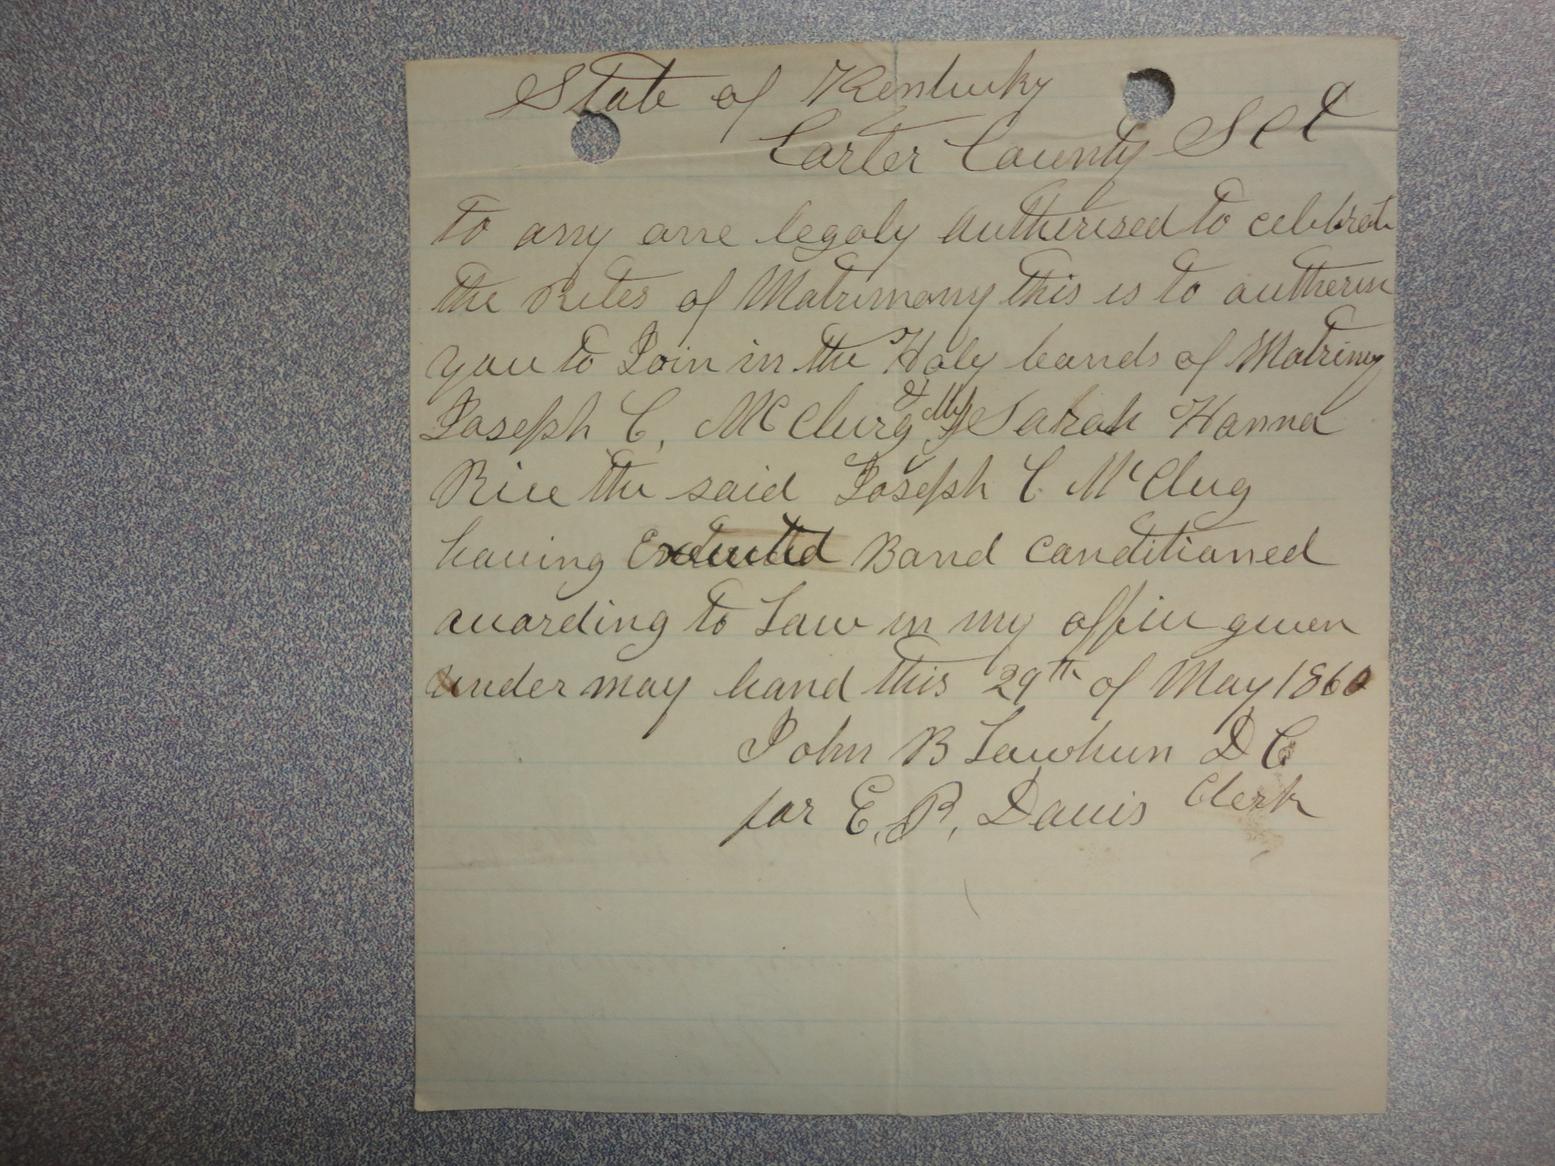 State of Kentucky
Carter County Sct
To any one legaly Autherised to celebrate
the Rites of Matrimony this is to autherise
you to Join in the Holy bands of Matrimy
Joseph C, McClurg & Sarah Hanna
Rice the said Joseph C McClug
having Executed Band conditioned
according to Law in my office given
under may hand this 29th of May 1860
John B Lawhun D C
for E. B. Davis Clerk